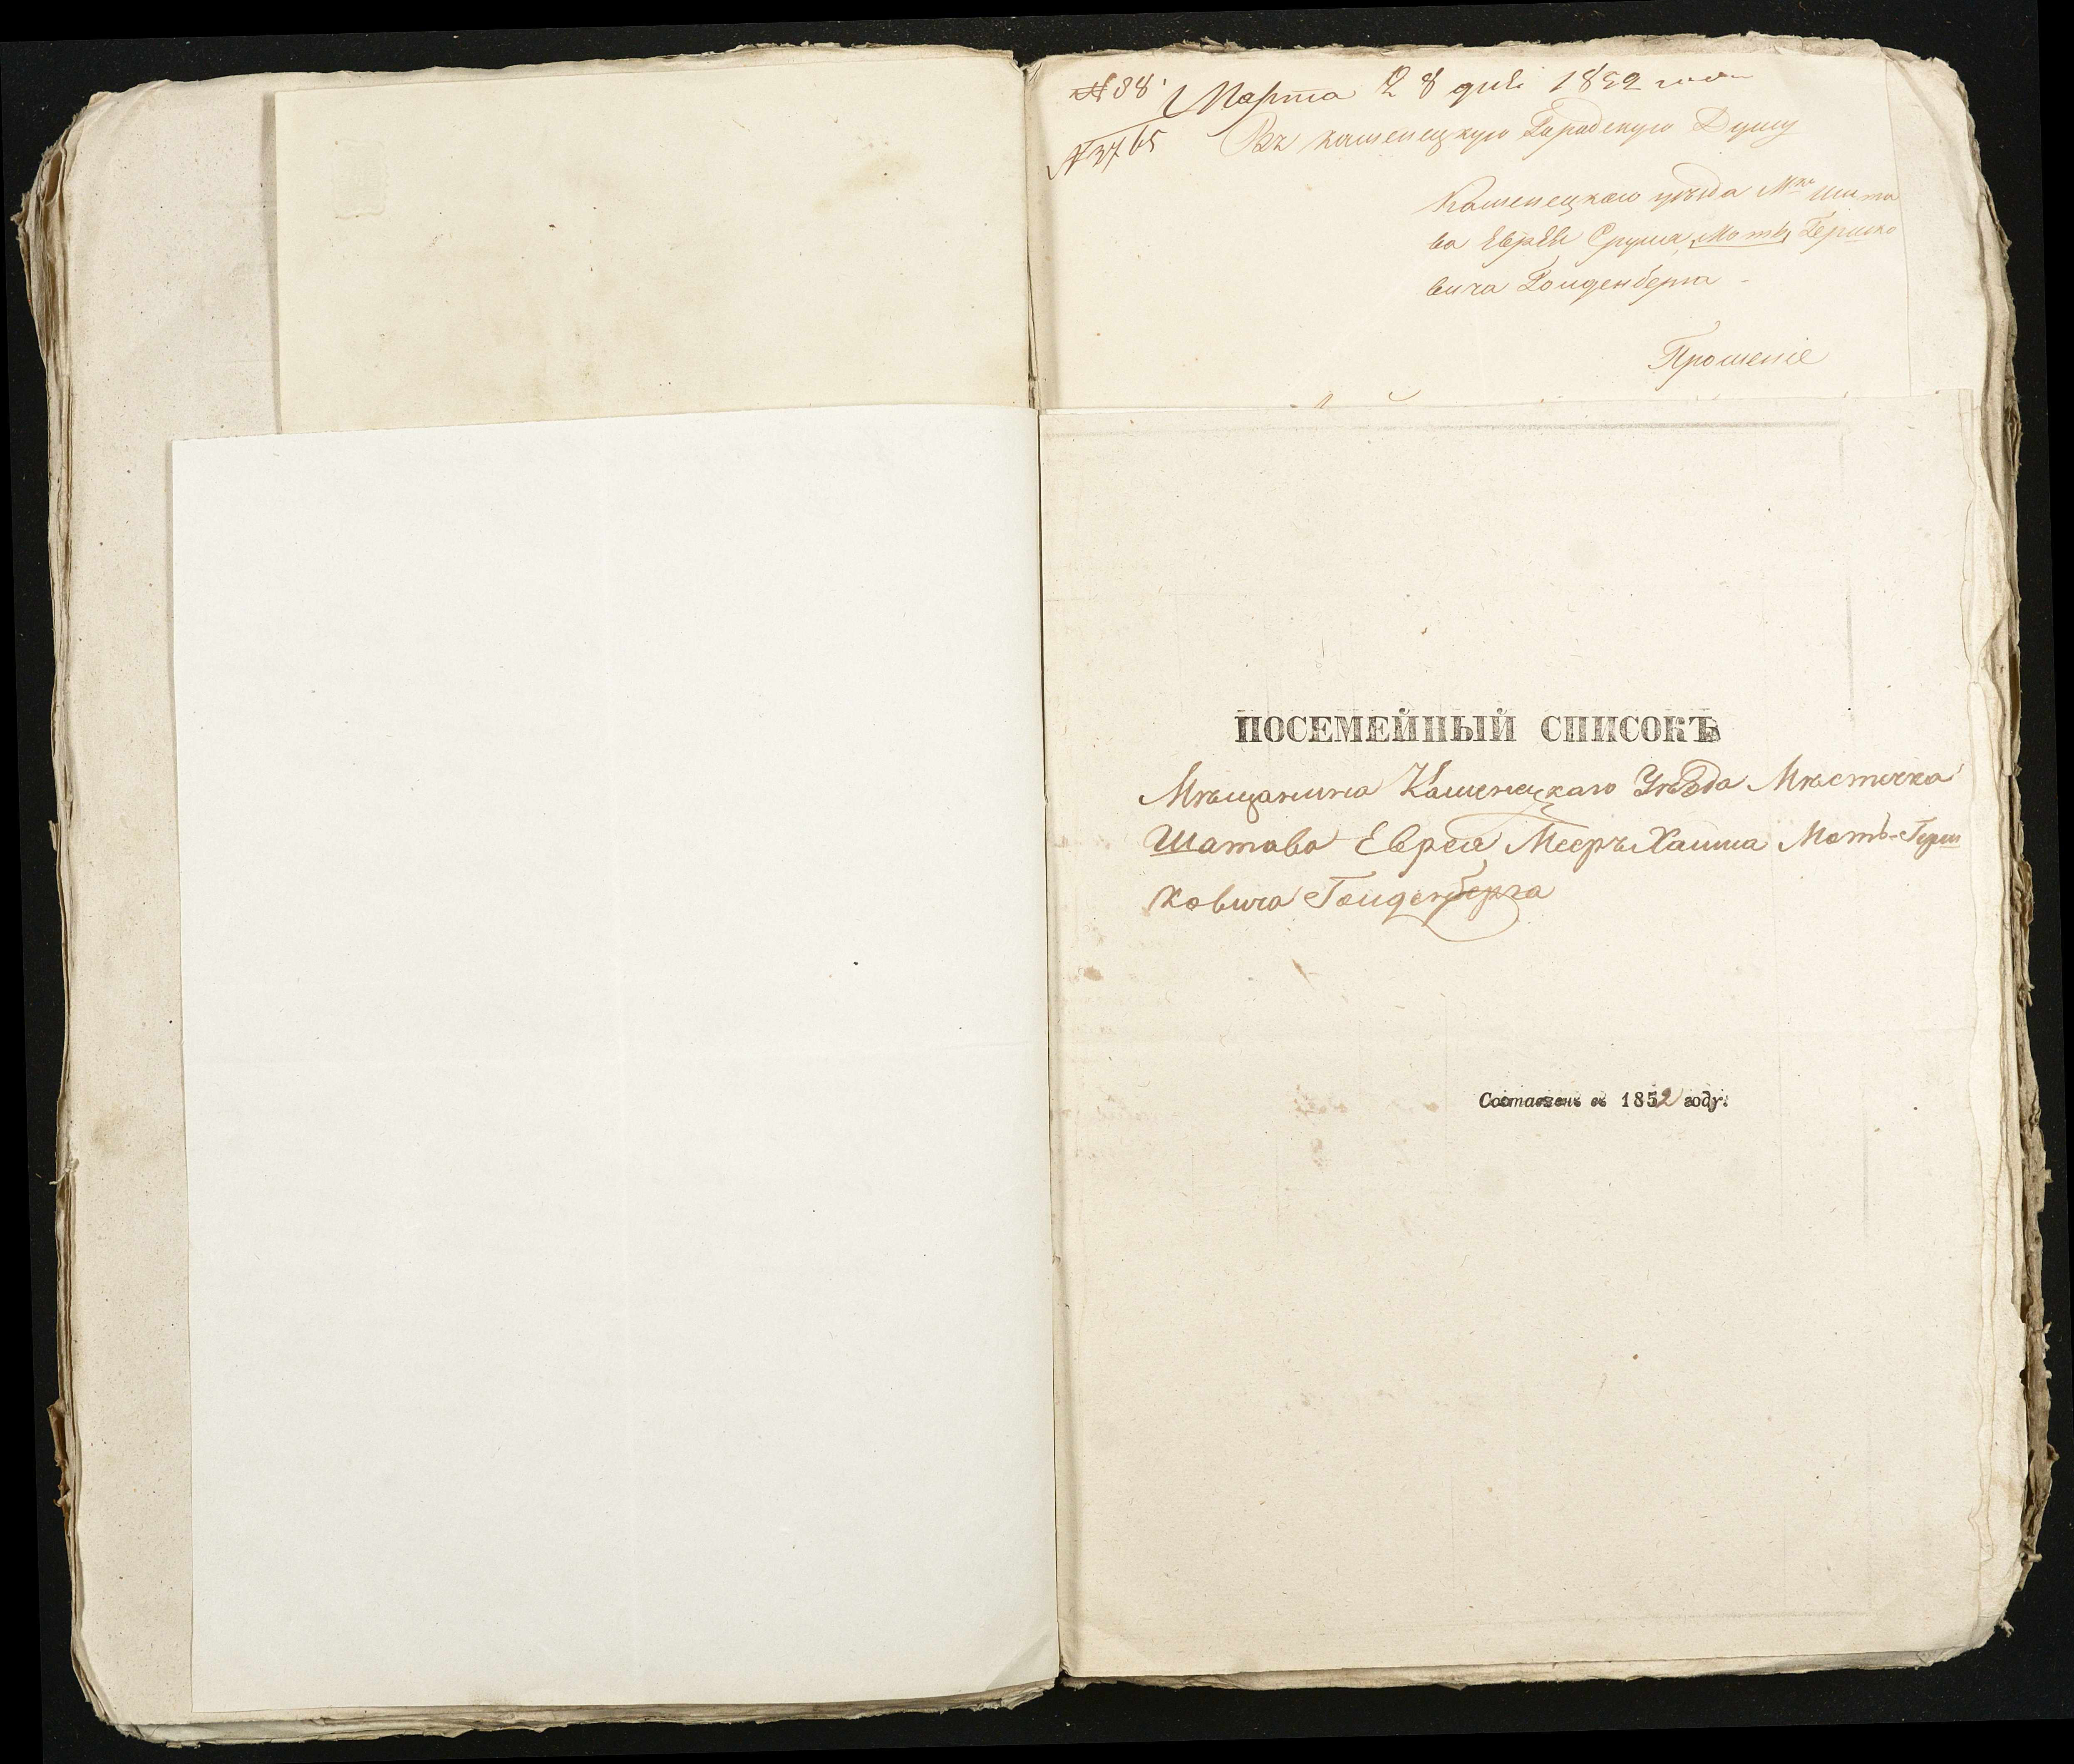 № 88. Марта 28 дня 1852 года
№ 3765 Въ Каменецкую Городскую Думу
Каменецкого уезда Мка Шата
ва Еврея Сруля Моть Гершко
вича Гоиденберга
Прошеніе
ПОСЕМЕЙНЫЙ СПИСОКЪ
Мѣщанина Каменецкаго Уѣзда Мѣстечка
Шатава Еврея Мееръ Хаима Моть-Герш
ковича Гоиденберга
Составленъ въ 1852 году.